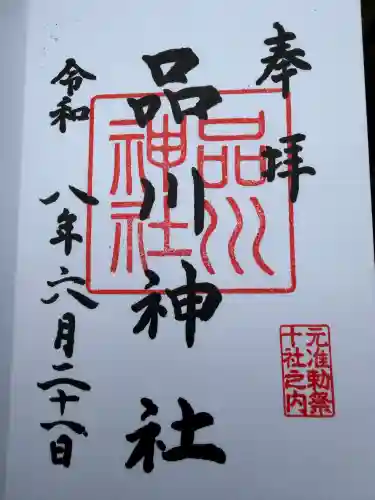 奉拝
品川神社
令和八年六月二十一日
品川
神社
元准勅祭
十社之内